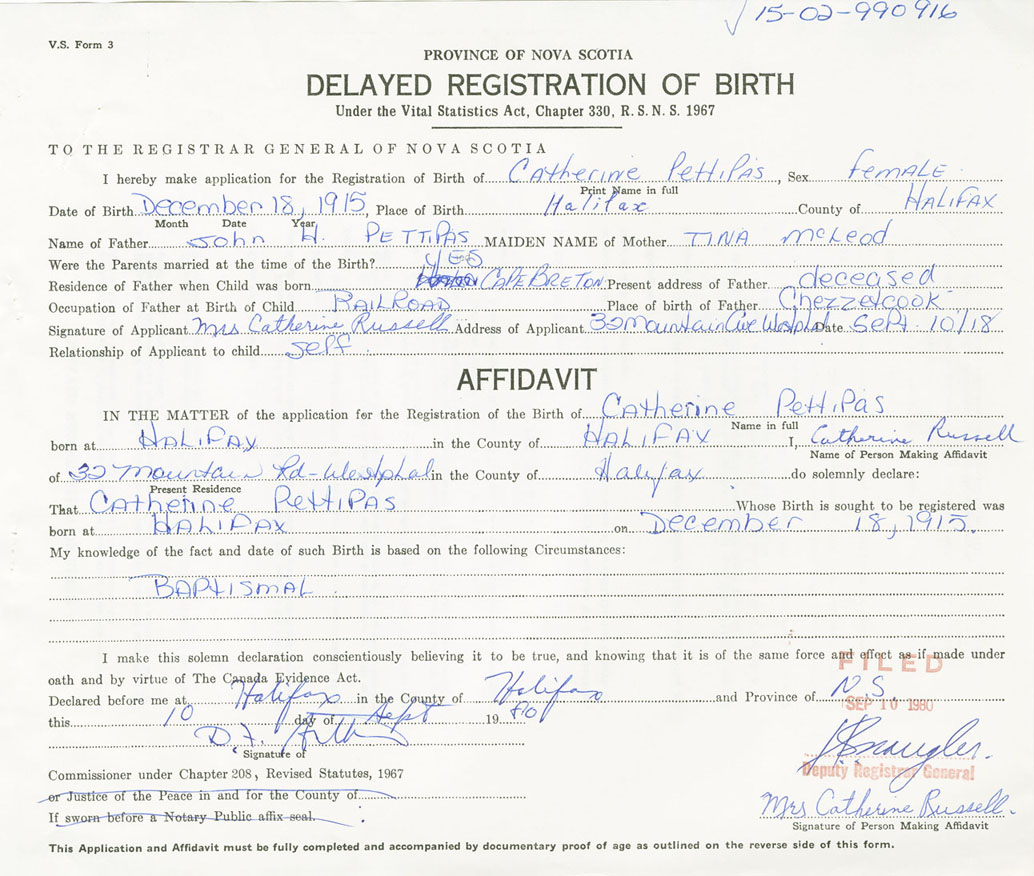 15-02-990916
V.S. Form 3
PROVINCE OF NOVA SCOTIA
DELAYED REGISTRATION OF BIRTH
Under the Vital Statistics Act, Chapter 330, R. S. N. S. 1967
TO THE REGISTRAR GENERAL OF NOVA SCOTIA
I hereby make application for the Registration of Birth of Catherine PettiPas, Sex Female
Print Name in full
Date of Birth December 18, 1915, Place of Birth Halifax County of HALIFAX
Month Date Year
Name of Father John H. PETTIPAS MAIDEN NAME of Mother TINA McLeod
Were the Parents married at the time of the Birth? YES
Residence of Father when Child was born CAPE BRETON Present address of Father deceased
Occupation of Father at Birth of Child RAILROAD Place of birth of Father Chezzetcook
Signature of Applicant Mrs Catherine Russell Address of Applicant 32 Mountain Ave Westphal Date Sept 10/18
Relationship of Applicant to child self
AFFIDAVIT
IN THE MATTER of the application for the Registration of the Birth of Catherine PettiPas
Name in full
born at HALIFAX in the County of HALIFAX I, Catherine Russell
Name of Person Making Affidavit
of 32 Mountain Rd-Westphal in the County of Halifax do solemnly declare:
Present Residence
That Catherine PettiPas Whose Birth is sought to be registered was
born at HALIFAX on December 18, 1915.
My knowledge of the fact and date of such Birth is based on the following Circumstances:
BAPtISMAL
I make this solemn declaration conscientiously believing it to be true, and knowing that it is of the same force and effect as if made under
FILED
oath and by virtue of The Canada Evidence Act.
Declared before me at Halifax in the County of Halifax and Province of N.S.
SEP 10 1980
this 10 day of Sept 19 80
D.F.
Signature of
Commissioner under Chapter 208, Revised Statutes, 1967
Deputy Registrar General
or Justice of the Peace in and for the County of
Mrs Catherine Russell.
If sworn before a Notary Public affix seal.
Signature of Person Making Affidavit
This Application and Affidavit must be fully completed and accompanied by documentary proof of age as outlined on the reverse side of this form.